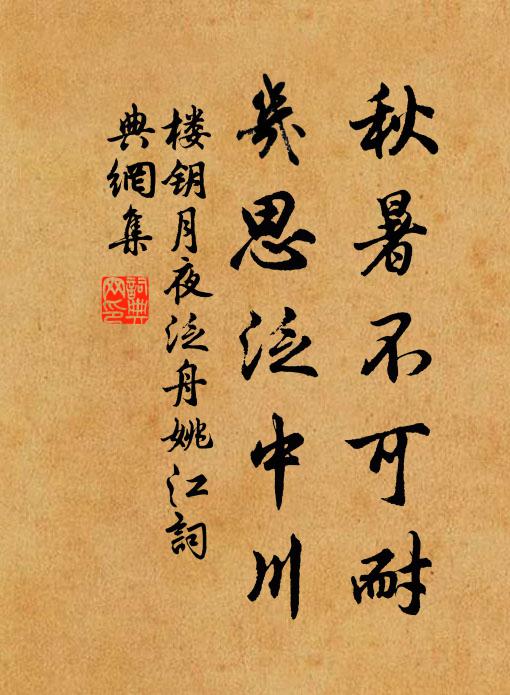 秋暑不可耐
幾思泛中川
楼钥月夜泛舟姚江詞
典網集
詞典
网印